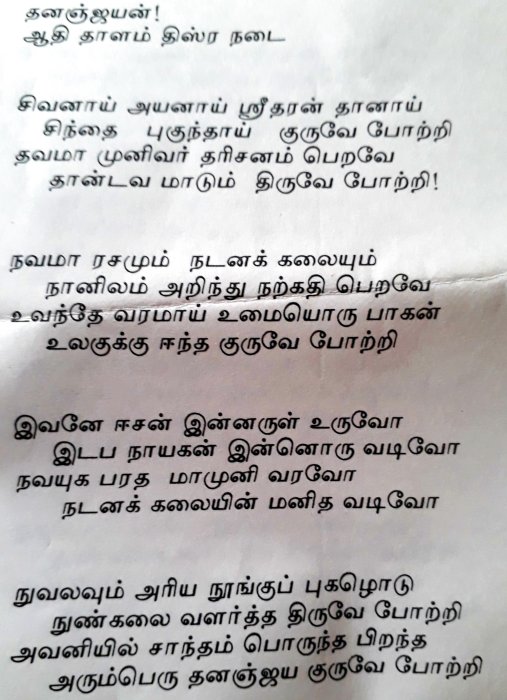 தனஞ்ஜயன்!
ஆதி தாளம் திஸ்ர நடை
சிவனாய் அயனாய் ஸ்ரீதரன் தானாய்
சிந்தை புகுந்தாய் குருவே போற்றி
தவமா முனிவர் தரிசனம் பெறவே
தாண்டவ மாடும் திருவே போற்றி!
நவமா ரசமும் நடனக் கலையும்
நானிலம் அறிந்து நற்கதி பெறவே
உவந்தே வரமாய் உமையொரு பாகன்
உலகுக்கு ஈந்த குருவே போற்றி
இவனே ஈசன் இன்னருள் உருவோ
இடப நாயகன் இன்னொரு வடிவோ
நவயுக பரத மாமுனி வரவோ
நடனக் கலையின் மனித வடிவோ
நுவலவும் அரிய நூங்குப் புகழொடு
நுண்கலை வளர்த்த திருவே போற்றி
அவனியில் சாந்தம் பொருந்த பிறந்த
அரும்பெரு தனஞ்ஜய குருவே போற்றி